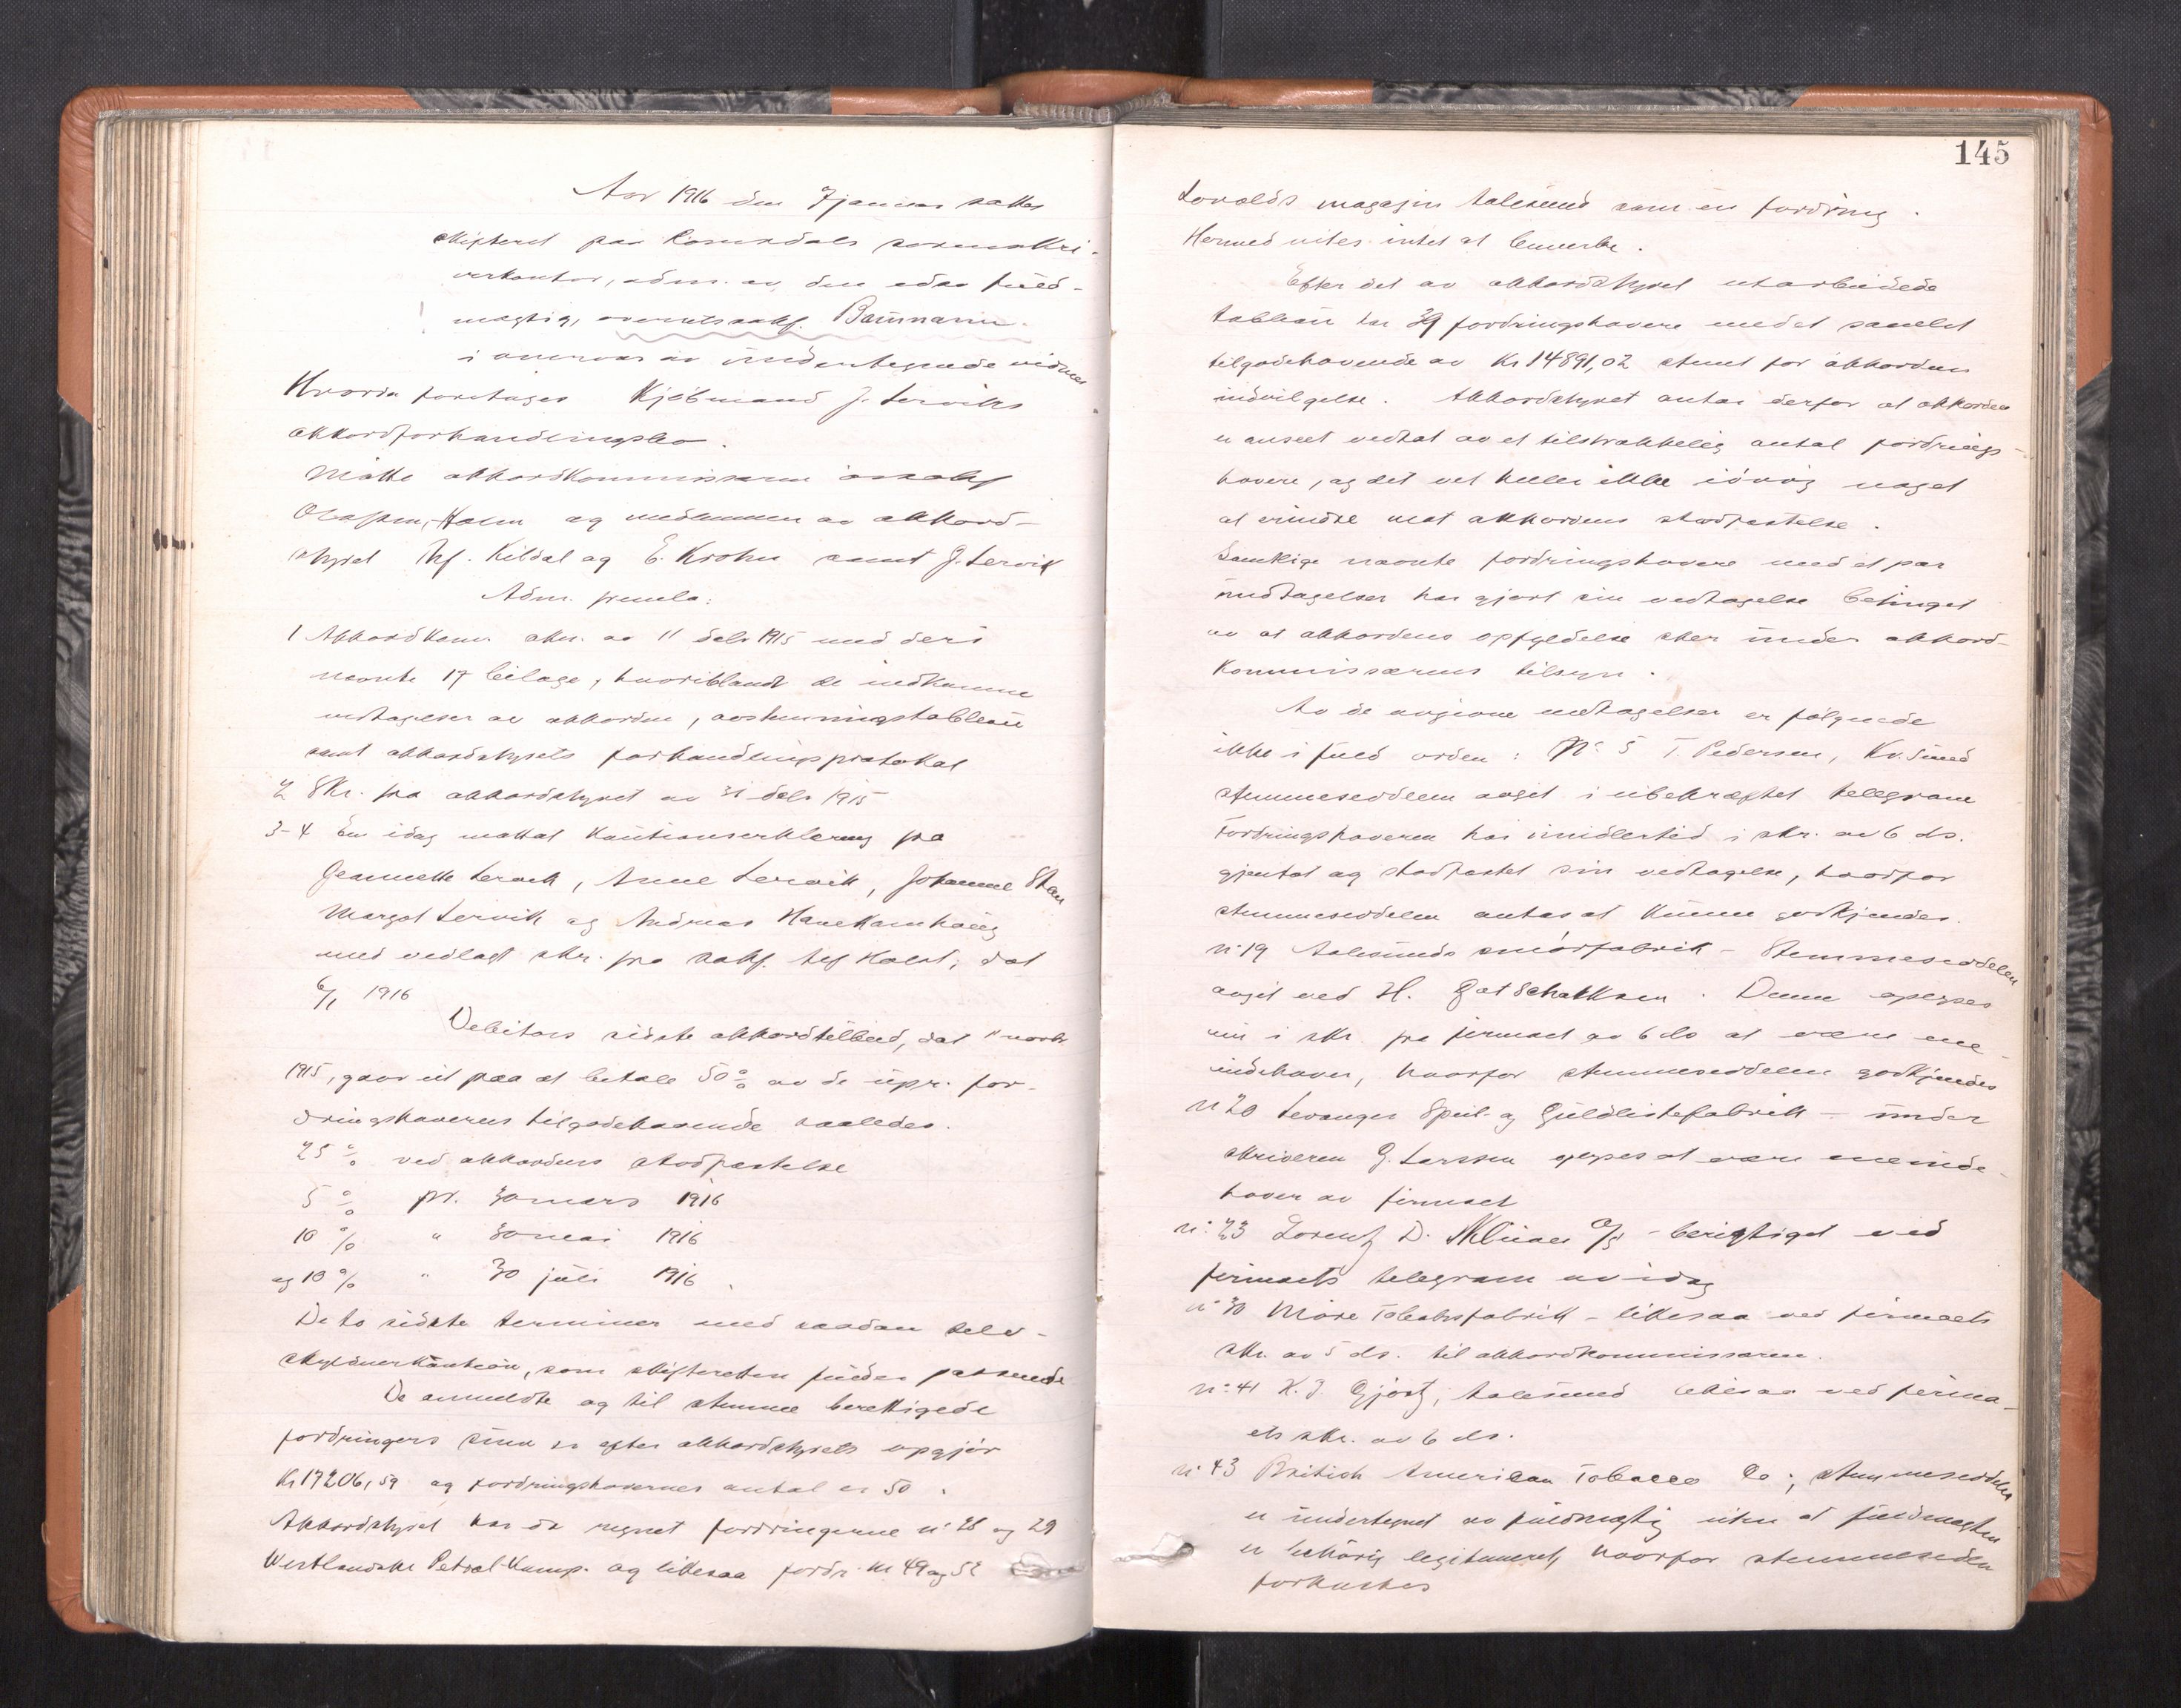 Aar 1916 den 7 januar sattes
skifteret paa Romsdals sorenskri-
verkontor, adm. av den edsv fuld-
mægtig, overretssakf. Baumann.
i overvær av undertegnede vidner
Hvorda foretages Kjøbmand J. Lerviks
akkordforhandlingsbo.
Møtte akkordkommissæren
Holm og medlemmer av akkord-
styret Kildal og E. Krohn samt J. Lervik
Adm. fremla:
1 Akkordkom. skr. av 11 debr 1915 med deri
nævnte 17 bilage, hvoriblandt de indkomne
vedtagelser av akkorden, avstemningstableau
samt akkordstyrets forhandlingsprotokol
2 Skr. fra akkordstyret av 31 debr 1915
3-4 En idag mottat kautionserklæring fra
Jeannette Lervik, Anne Lervik, Johanne
Margot Lervik og Andreas Hanekamhaug
med vedlagt skr. fra sakf. Holst, dat
6/1 1916
Debitors sidste akkordtilbud, dat 11 novbr
1915, gaar ut paa at betale 50 % av de upr. for-
dringshaveres tilgodehavende saaledes.
25 % ved akkordens stadfæstelse
5 % pr. 30 mars 1916
10 % " 30 mai 1916
og 10 % " 30 juli 1916.
De to sidste terminer med saadan selv-
skyldnerkaution, som skifteretten finder passende
De anmeldte og til stemme berettigede
fordringers sum er efter akkordstyrets opgjør
Kr 17206,59 og fordringshavernes antal er 50.
Akkordstyret har da regnet fordringerne no 28 og 29
Westlandske Petrol-Komp. og likesaa fordr. nr 49 og 52
145
Lovolds magasin Aalesund som en fordring.
Hermed vites intet at bemerke.
Efter det av akkordstyret utarbeidede
tableau har 39 fordringshavere med et samlet
tilgodehavende av Kr 14891,02 stemt for akkordens
indvilgelse. Akkordstyret antar derfor at akkorden
er anseet vedtat av et tilstrækkelig antal fordrings-
havere, og det vet heller ikke iøvrig noget
at erindre mot akkordens stadfæstelse.
Samtlige nævnte fordringshavere med et par
undtagelser har gjort sin vedtagelse betinget
av at akkordens opfyldelse sker under akkord-
kommissærens tilsyn.
Av de avgivne vedtagelser er følgende
ikke i fuld orden: No 5 T. Pedersen, Kv.
stemmeseddelen avgit i ubekræftet telegram
Fordringshaveren har imidlertid i skr. av 6 ds.
gjentat og stadfæstet sin vedtagelse, hvorfor
stemmeseddelen antas at kunne godkjendes.
no 19 Aalesunds smørfabrik - Stemmeseddelen
avgit ved H. Gotschalksen. Denne opgives
nu i skr. fra firmaet av 6 ds at være ene-
indehaver, hvorfor stemmeseddelen godkjendes
no 20 Levanger Speil- og Guldlistefabrik - under
skriveren G. Larssen opgives at være eneinde-
haver av firmaet
no. 23 Lorentz D. A/S - berigtiget ved
firmaets telegram av idag
no 30 Møre Tobaksfabrik - likesaa ved firmaets
skr. av 5 ds. til akkordkommissæren.
no. 41 H. J. Gjørtz, Aalesund likesaa ved firma-
ets skr. av 6 ds.
no 43 British American Tobacco Co; stemmeseddelen
er undertegnet av fuldmægtig uten at fuldmagten
er behørig legitimeret, hvorfor stemmeseddelen
forkastes